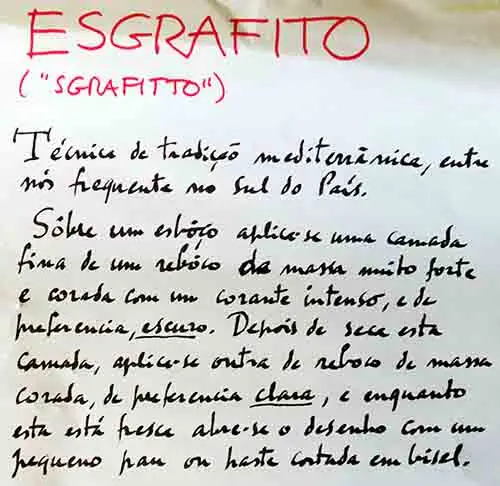 ESGRAFITO
("SGRAFITTO")
Técnica de tradição mediterrânica, entre
nós frequente no Sul do País.
Sôbre um esbôço aplica-se uma camada
fina de um rebôco de massa muito forte
e corada com um corante intenso, e de
preferencia, escuro. Depois de seca esta
camada, aplica-se outra de reboco de massa
corada, de preferencia clara, e enquanto
esta está fresca abre-se o desenho com um
pequeno pau ou haste cortada em bisel.